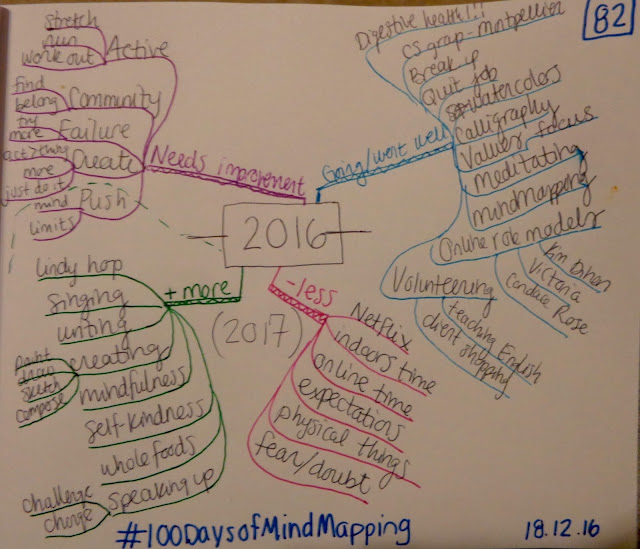 82
2016
(2017)
Needs improvement
Active
stretch
run
work out
Community
find
belong
Failure
try
more
Create
act > thing
more
just do it
Push
mind
limits
Going/went well
Digestive health!!!
CS group - Montpellier
Break up
Quit job
watercolors
Calligraphy
Values focus
Meditating
mindmapping
Online role models
Kim Dihan
Victoria
Candice Rose
Volunteering
teaching English
client shopping
+ more
lindy hop
singing
writing
creating
paint
draw
sketch
compose
mindfulness
self-kindness
whole foods
speaking up
challenge
change
- less
Netflix
indoors time
online time
expectations
physical things
fear/doubt
#100DaysofMindMapping
18.12.16